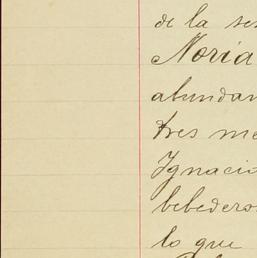 de la se
Noria
abundan
tres me
Ignacio
bebedero
lo que